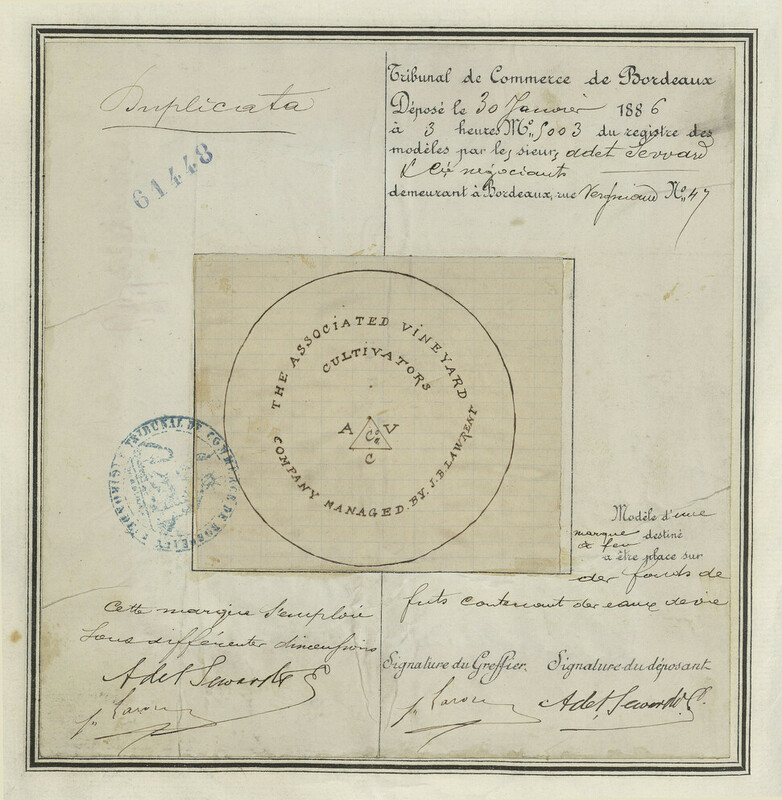 Duplicata
61448
Tribunal de Commerce de Bordeaux
Déposé le 30 Janvier 1886
à 3 heures Nº 5003 du registre des
modèles par les sieurs Adet Seward
& Cie négociants
demeurant à Bordeaux, rue Vergniaud Nº 47
THE ASSOCIATED VINEYARD
CULTIVATORS
A V
Co
C
COMPANY MANAGED. BY. J.B. LAWRENT
TRIBUNAL DE COMMERCE DE BORDEAUX
Modèle d'une
marque destiné
à feu
à être place sur
des fonds de
futs contenant des eaux de vie
Cette marque s'emploie
sous différentes dimensions
Adet Seward & Cº
Signature du Greffier. Signature du déposant
Adet, Seward & Cº